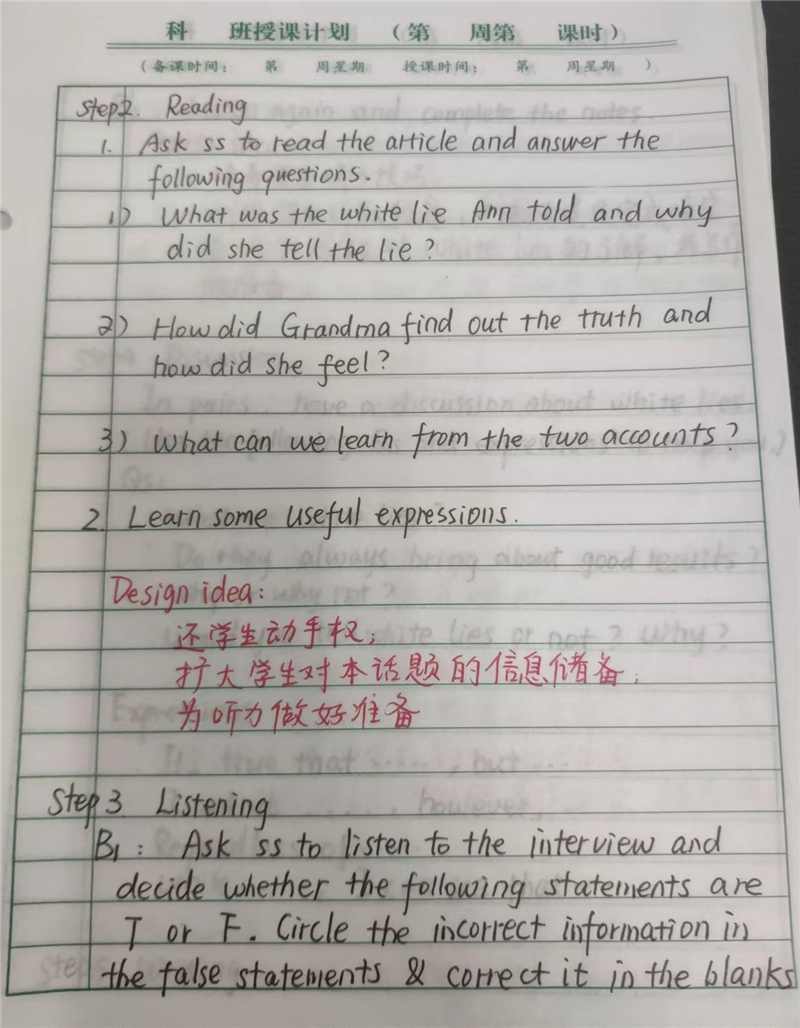 科 班授课计划 （第 周第 课时）
（备课时间： 第 周星期 授课时间： 第 周星期 ）
Step2. Reading
1. Ask ss to read the article and answer the
following questions.
1) What was the white lie Ann told and why
did she tell the lie?
2) How did Grandma find out the truth and
how did she feel?
3) What can we learn from the two accounts?
2. Learn some useful expressions.
Design idea:
还学生动手权；
扩大学生对本话题的信息储备；
为听力做好准备
Step 3 Listening
B1: Ask ss to listen to the interview and
decide whether the following statements are
T or F. Circle the incorrect information in
the false statements & correct it in the blanks